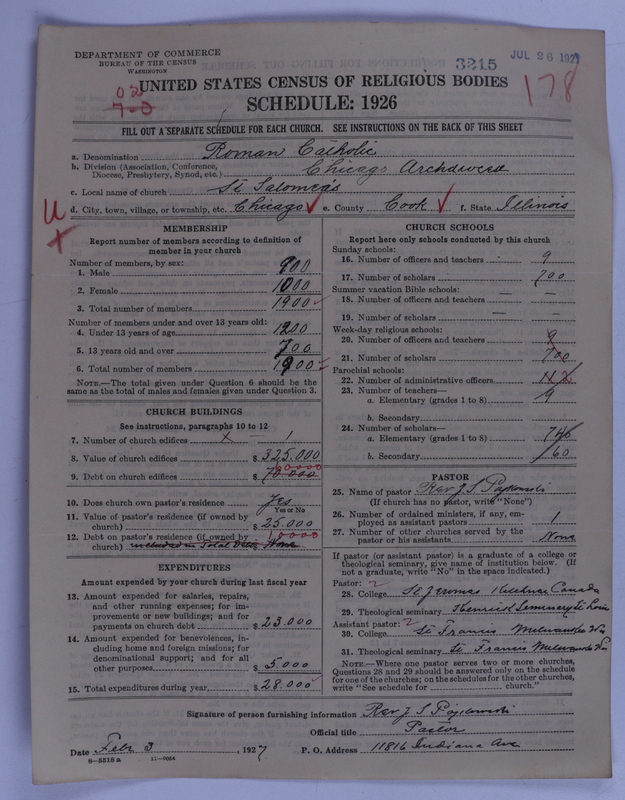 DEPARTMENT OF COMMERCE
BUREAU OF THE CENSUS
WASHINGTON
3215
JUL 26 1927
178
UNITED STATES CENSUS OF RELIGIOUS BODIES
SCHEDULE: 1926
FILL OUT A SEPARATE SCHEDULE FOR EACH CHURCH. SEE INSTRUCTIONS ON THE BACK OF THIS SHEET
a. Denomination Roman Catholic
b. Division (Association, Conference, Diocese, Presbytery, Synod, etc.) Chicago
c. Local name of church St Salomea's
d. City, town, village, or township, etc. Chicago e. County Cook f. State Illinois
MEMBERSHIP
Report number of members according to definition of
member in your church
Number of members, by sex:
1. Male 900
2. Female 1000
3. Total number of members 1900
Number of members under and over 13 years old:
4. Under 13 years of age 1200
5. 13 years old and over 700
6. Total number of members 1900
NOTE.—The total given under Question 6 should be the
same as the total of males and females given under Question 3.
CHURCH BUILDINGS
See instructions, paragraphs 10 to 12
7. Number of church edifices x 1
8. Value of church edifices $ 325.000
9. Debt on church edifices $
10. Does church own pastor's residence Yes
Yes or No
11. Value of pastor's residence (if owned by
church) $ 25.000
12. Debt on pastor's residence (if owned by
church) included in Total None
EXPENDITURES
Amount expended by your church during last fiscal year
13. Amount expended for salaries, repairs,
and other running expenses; for im-
provements or new buildings; and for
payments on church debt $ 23.000
14. Amount expended for benevolences, in-
cluding home and foreign missions; for
denominational support; and for all
other purposes $ 5.000
15. Total expenditures during year $ 28.000
CHURCH SCHOOLS
Report here only schools conducted by this church
Sunday schools:
16. Number of officers and teachers 9
17. Number of scholars 700
Summer vacation Bible schools:
18. Number of officers and teachers — —
19. Number of scholars — —
Week-day religious schools:
20. Number of officers and teachers 9
21. Number of scholars 700
Parochial schools:
22. Number of administrative officers
23. Number of teachers—
a. Elementary (grades 1 to 8) 9
b. Secondary
24. Number of scholars—
a. Elementary (grades 1 to 8) 746
b. Secondary 60
PASTOR
25. Name of pastor Rev J. S.
(If church has no pastor, write "None")
26. Number of ordained ministers, if any, em-
ployed as assistant pastors 1
27. Number of other churches served by the
pastor or his assistants None
If pastor (or assistant pastor) is a graduate of a college or
theological seminary, give name of institution below. (If
not a graduate, write "No" in the space indicated.)
Pastor: 2
28. College St. Jeromes Canada
29. Theological seminary Seminary St Louis
Assistant pastor: 2
30. College St Francis Milwaukee Wis
31. Theological seminary St. Francis Milwaukee Wis
NOTE.—Where one pastor serves two or more churches,
Questions 28 and 29 should be answered only on the schedule
for one of the churches; on the schedules for the other churches,
write "See schedule for church."
Signature of person furnishing information Rev J. S.
Official title Pastor
Date Feb 3, 1927 P. O. Address 11816 Indiana Ave
8—5518 a 11—9054